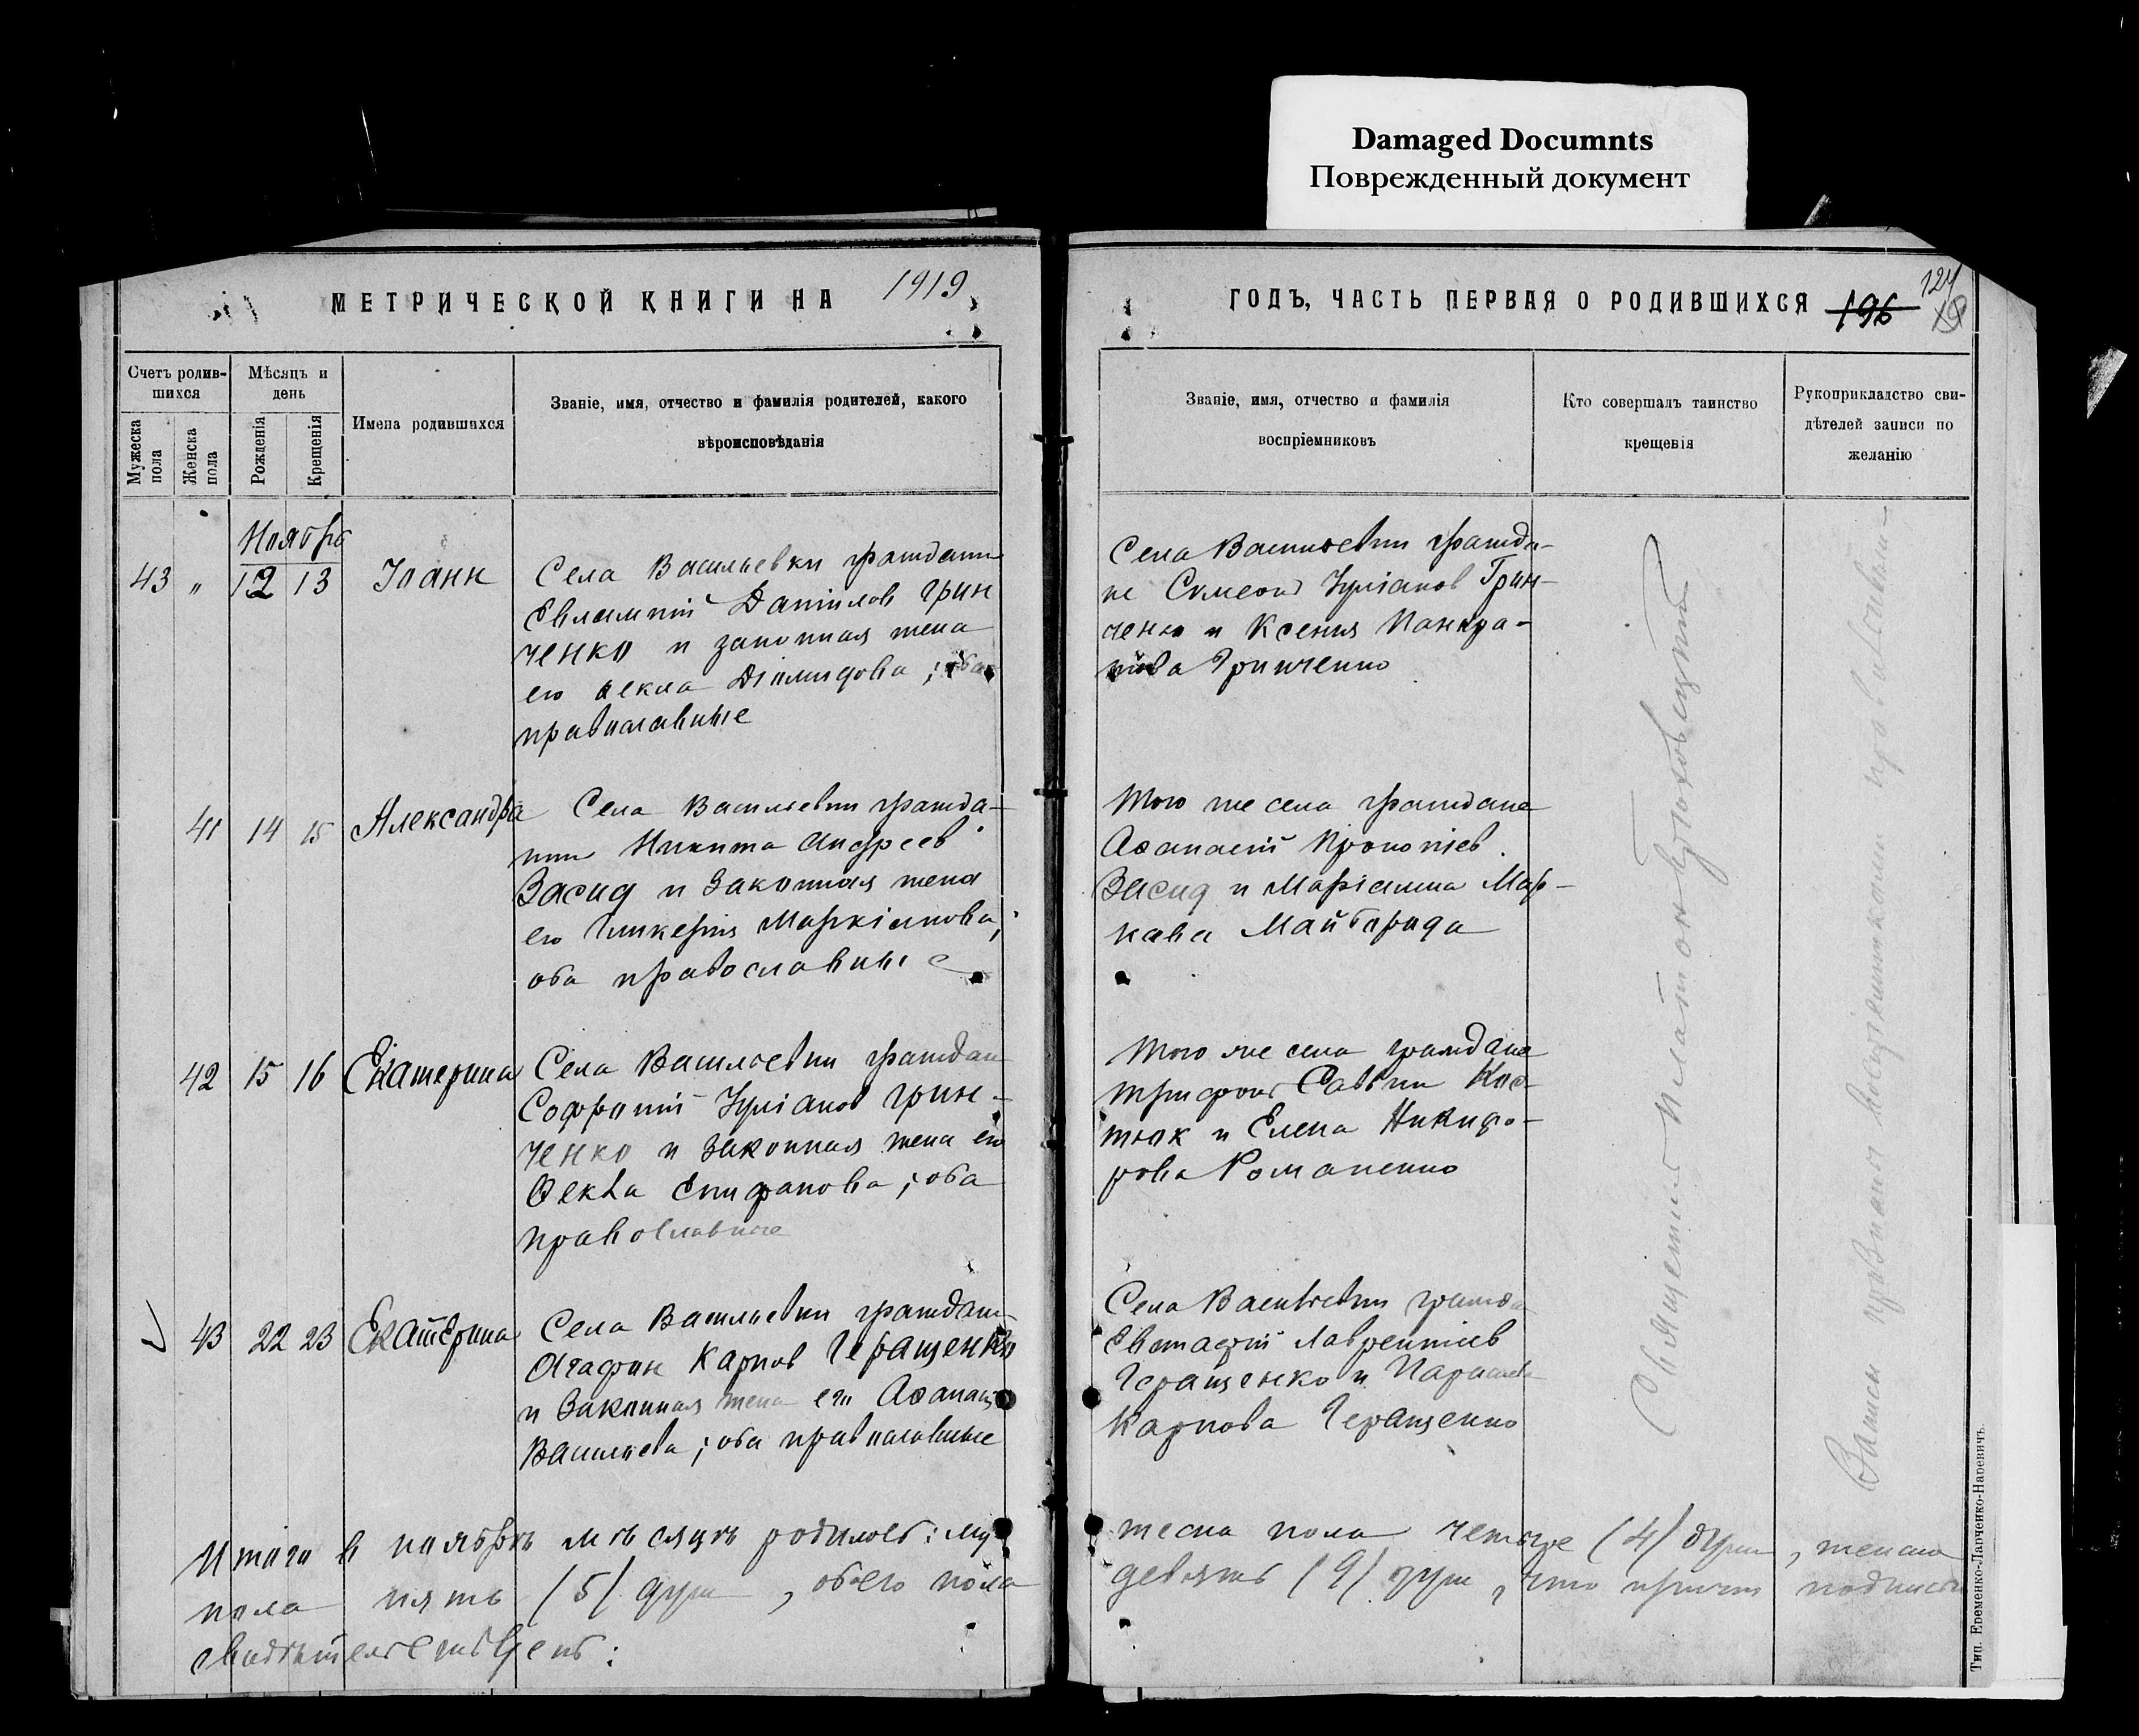 Damaged Documnts
Поврежденный документ
МЕТРИЧЕСКОЙ КНИГИ НА 1919
ГОДЪ, ЧАСТЬ ПЕРВАЯ О РОДИВШИХСЯ 196 124
Счетъ родив-
шихся
Мужеска пола
Женска пола
Мѣсяцъ и
день
Рожденія
Крещенія
Имена родившихся
Званіе, имя, отчество и фамилія родителей, какого
вѣроисповѣданія
Званіе, имя, отчество и фамилія
воспріемниковъ
Кто совершалъ таинство
крещенія
Рукоприкладство сви-
дѣтелей записи по
желанію
Ноябрь
43 " 12 13 Іоанн
Села Васильевки граждан
Евлампій Даніилов Грин
ченко и законная жена
его Текла Діомидова; оба
православные
Села Васильевки гражда-
не Симеон Іуліанов Грин-
ченко и Ксения Панкра-
това Гринченко
41 14 15 Александра
Села Васильевки гражда-
нин Никита Андреев
Засид и законная жена
его Гликерія Маркіанова;
оба православные
Того же села граждане
Аѳанасій Прокопіев
Засид и Маріанна Мар-
кова Майборода
42 15 16 Екатерина
Села Васильевки граждан
Софроній Іуліанов Грин-
ченко и законная жена его
Ѳекла Епифанова; оба
православные
Того же села граждане
Трифон Саввин Кос-
тюк и Елена Никифо-
рова Романенко
43 22 23 Екатерина
Села Васильевки граждан
Агафон Карпов Геращенко
и законная жена его
Васильева; оба православные
Села Васильевки гражда
Евстафій Лаврентіев
Геращенко и
Карпова Геращенко
Священник Платон
Записи
Итого в ноябрѣ мѣсяцѣ родилось: му
жеска пола четыре (4) души, женска
пола пять (5) душ, обоего пола
девять (9) душ, что причт подписью
свидѣтельствует:
Тип. Еременко-Лапченко-Наревичъ.